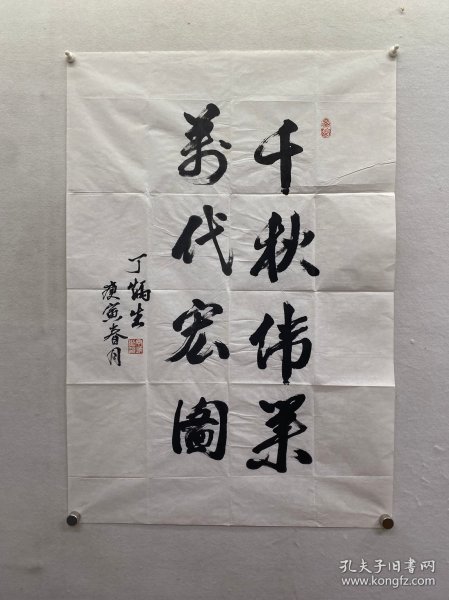 千秋伟業
萬代宏圖
丁炳生
庚寅春月
孔夫子旧书网
www.kongfz.com